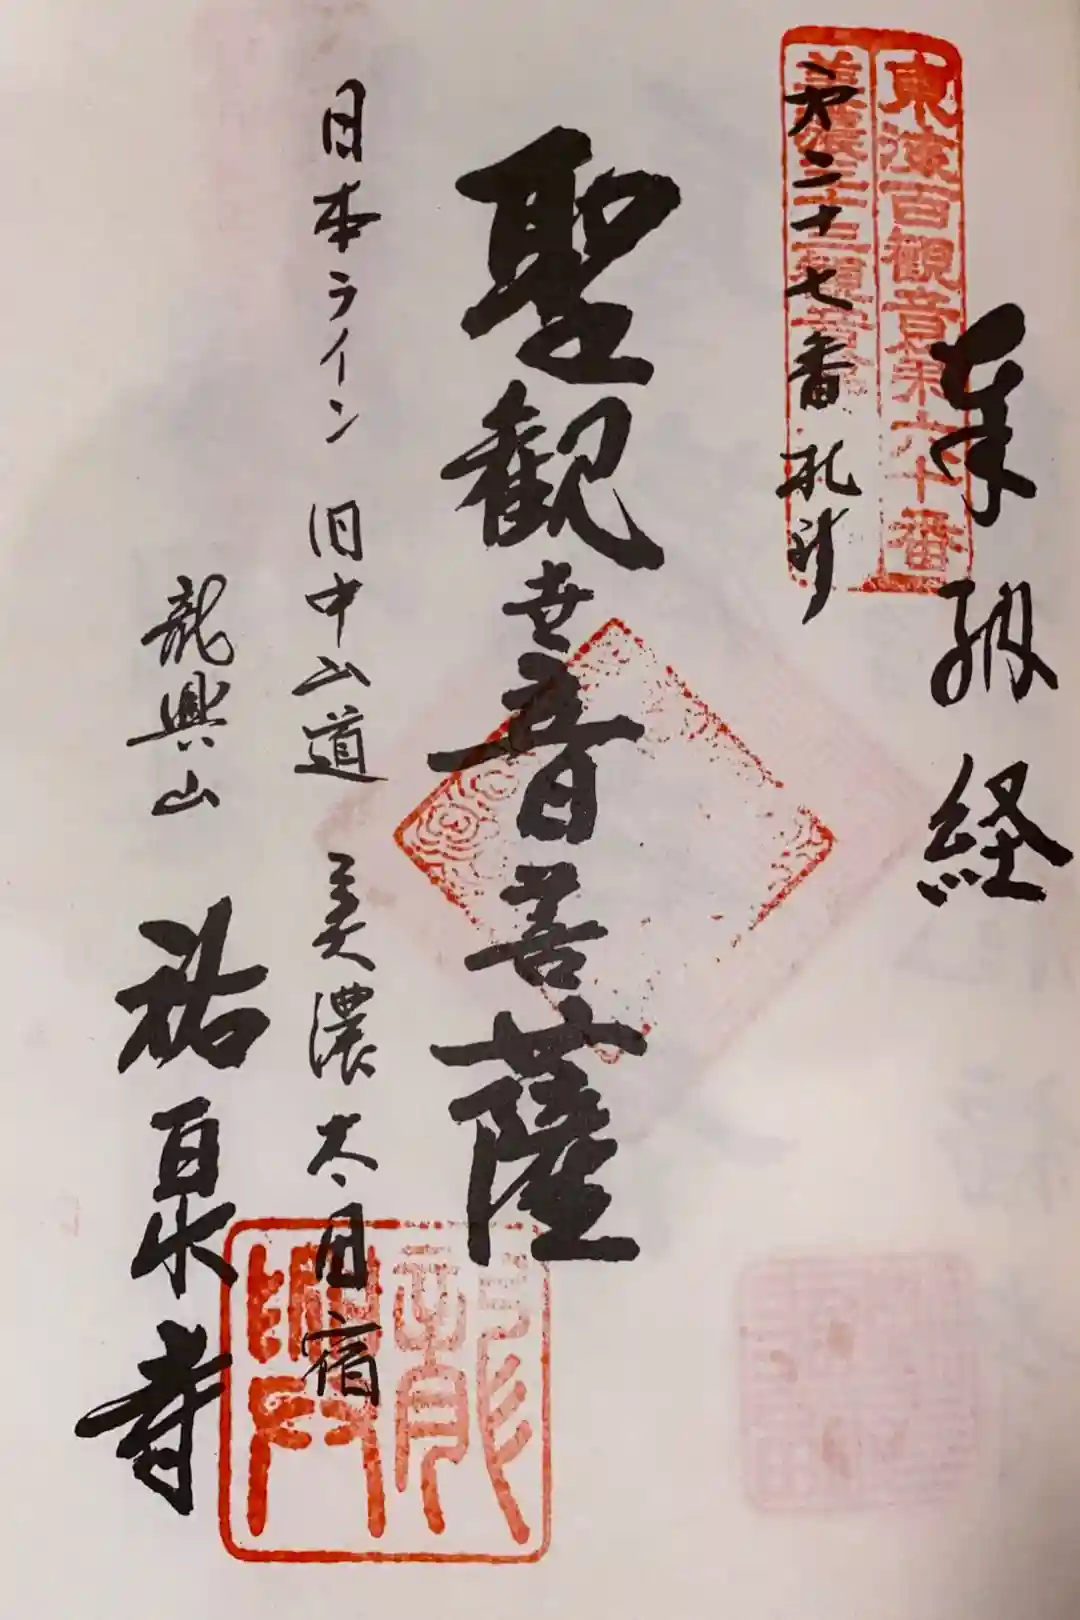 奉納経
東海百観音第六十番
美濃三十三観音
第二十七番札所
聖観世音菩薩
日本ライン 旧中山道 美濃太田宿
龍興山
祐泉寺
龍興